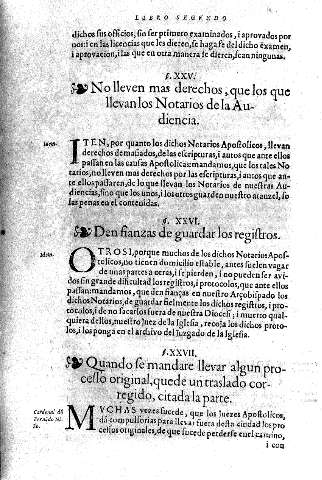 LIBRO SEGUNDO
dichos sus oficios, sin ser primero examinados, i aprovados por
nos: i en las licencias que les dieren, se haga fe del dicho examen,
i aprovacion, i las que en otra manera se dieren, sean ningunas.
§. XXV.
No lleven mas derechos, que los que
llevan los Notarios de la Au-
diencia.
Idem.
ITEN, por quanto los dichos Notarios Apostolicos, llevan
derechos demasiados, de las escripturas, i autos que ante ellos
passan en las causas Apostolicas: mandamos, que los tales No
tarios, no lleven mas derechos por las escripturas, i autos que an-
te ellos passaren, de lo que llevan los Notarios de nuestras Au-
diencias, sino que los unos, i los otros guarden nuestro aranzel, so
las penas en el contenidas.
§. XXVI.
Den fianzas de guardar los registros.
Idem.
OTROSI, porque muchos de los dichos Notarios Apos-
tolicos, no tienen domicilio estable, antes suelen vagar
de unas partes a otras, i se pierden, i no pueden ser avi-
dos sin grande dificultad los registros, i protocolos, que ante ellos
passan: mandamos, que den fianzas en nuestro Arçobispado los
dichos Notarios, de guardar fielmente los dichos registros, i pro-
tocolos, i de no sacarlos fuera de nuestra Diocesi; i muerto qual-
quiera dellos, nuestro Juez de la Iglesia, recoja los dichos proto-
los, i los ponga en el archivo del Juzgado de la Iglesia.
§. XXVII.
Quando se mandare llevar algun pro-
cesso original, quede un traslado cor-
regido, citada la parte.
Cardenal dō
Fernãdo Ni
ño.
MUCHAS vezes sucede, que los Juezes Apostolicos,
dã compulsorias para llevar fuera desta ciudad los pro
cessos originales, de que sucede perderse en el camino,
i con